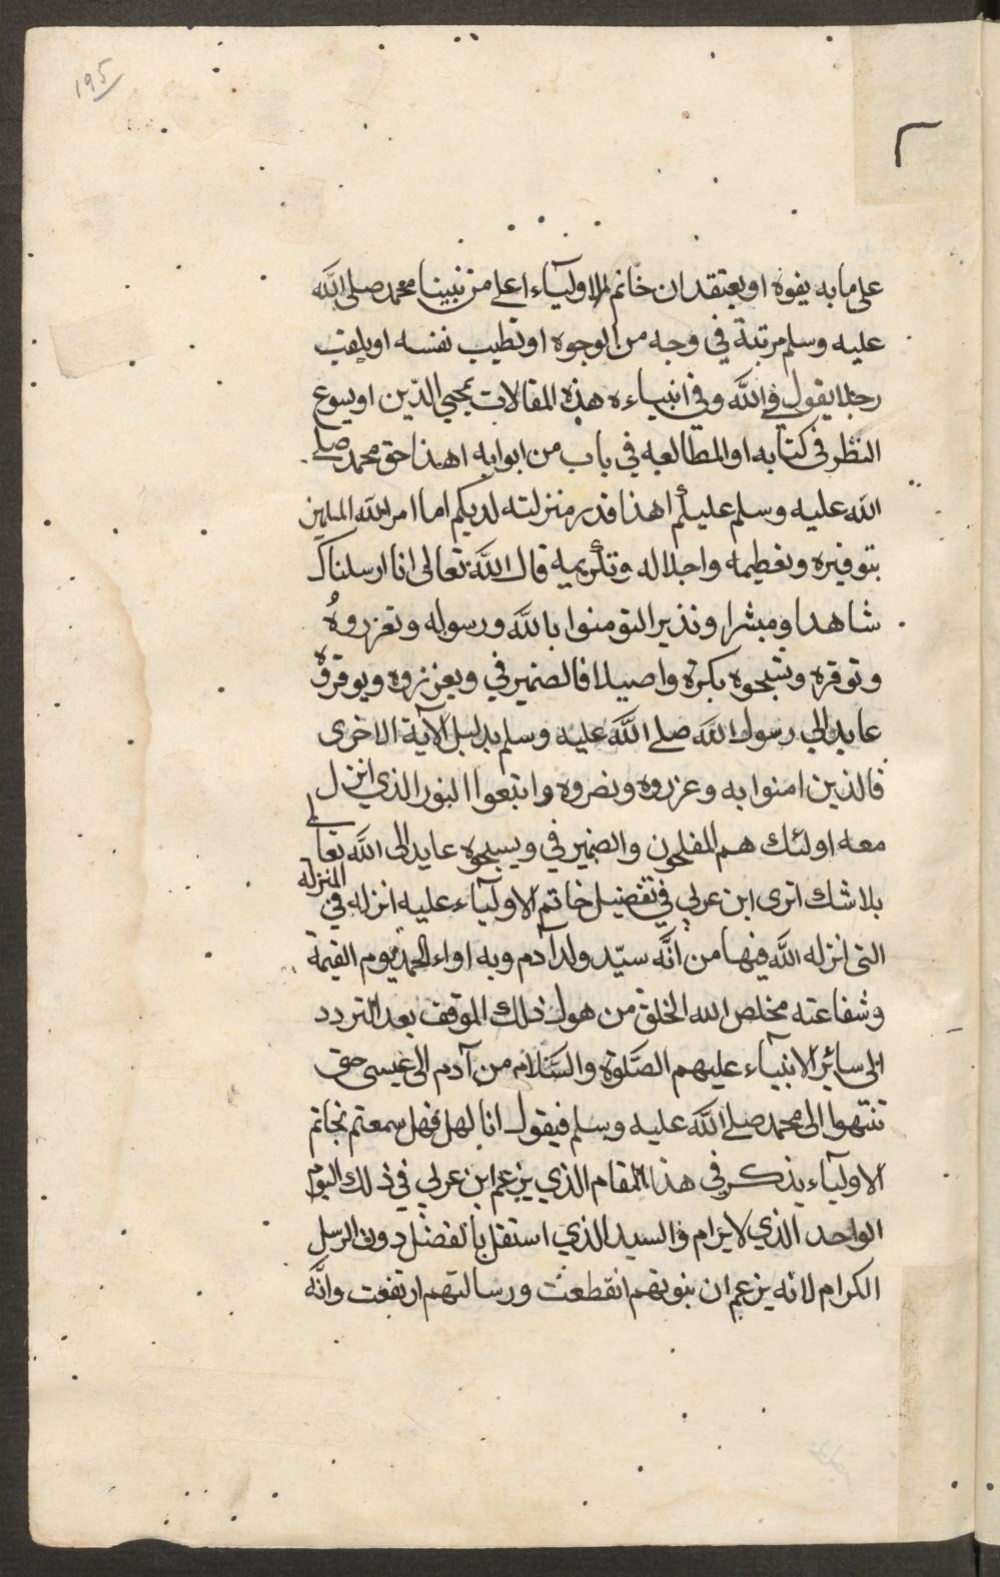 ١٩٥
على ما به يفوه او يعتقد ان خاتم الاولياء اعلى من نبينا محمد صلى الله
عليه وسلم مرتبة في وجه من الوجوه او تطيب نفسه او يلقب
رجلا يقول في الله وفي انبياءه هذه المقالات بمحيي الدّين او يسوع
النظر في كتابه او المطالعه في باب من ابوابه اهذا حق محمد صلى
الله عليه وسلم عليكم اهذا قدر منزلته لديكم اما امر الله المسلمين
بتوقيره وتعظيمه واجلاله وتكريمه قال الله تعالى انا ارسلناك
شاهدا ومبشرا ونذيرا لتومنوا بالله ورسوله وتعزروهُ
وتوقره وتسبحوه بكرة واصيلا فالضمير في ويعززوه ويوقروه
عايد الى رسول الله صلى الله عليه وسلم بدليل الآية الاخرى
فالذين امنوا به وعزروه ونصروه واتبعوا النور الذي انزل
معه اولئك هم المفلحون والضمير في ويسبحوه عايد الى الله تعالى
بلا شك اترى ابن عربي في تفضيل خاتم الاولياء عليه انزله في المنزلة
التى انزله الله فيها من انّه سيّد ولد آدم وبه لواء الحمد يوم القيمة
وشفاعته مخلص الله الخلق من هول ذلك الموقف بعد التردد
الى سائر الانبياء عليهم الصّلوة والسّلام من آدم الى عيسى حتى
تنتهوا الى محمد صلى الله عليه وسلم فيقول انا لها فهل سمعتم بخاتم
الاولياء يذكر في هذا المقام الذي يزعم ابن عربي في ذلك اليوم
الواحد الذي لا يرام والسيد الذي استقل بالفضل دون الرسل
الكرام لانه يزعم ان نبوتهم انقطعت ورسالتهم ارتفعت وانّه